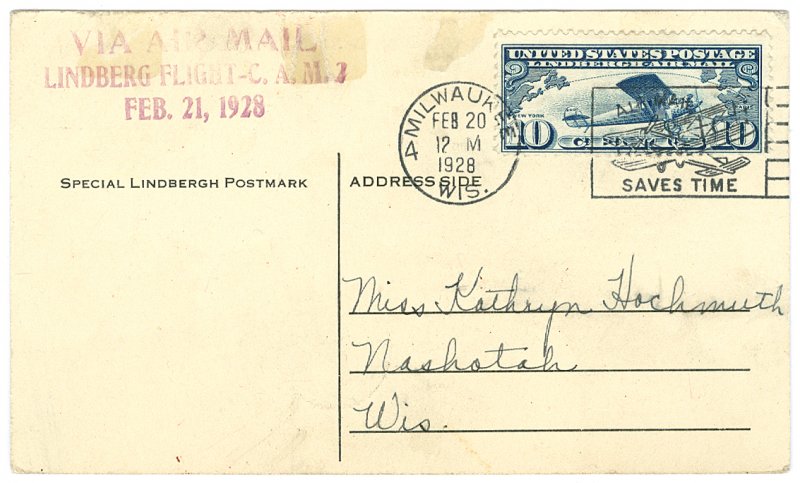 VIA AIR MAIL
LINDBERG FLIGHT-C. A. M. 2
FEB. 21, 1928
UNITED STATES POSTAGE
LINDBERGH-AIR MAIL
NEW YORK
10 CENTS 10
MILWAUKEE
FEB 20
12 M
1928
WIS.
4
AIR MAIL
SAVES TIME
SPECIAL LINDBERGH POSTMARK
ADDRESS SIDE
Miss Kathryn Hochmuth
Nashotah
Wis.